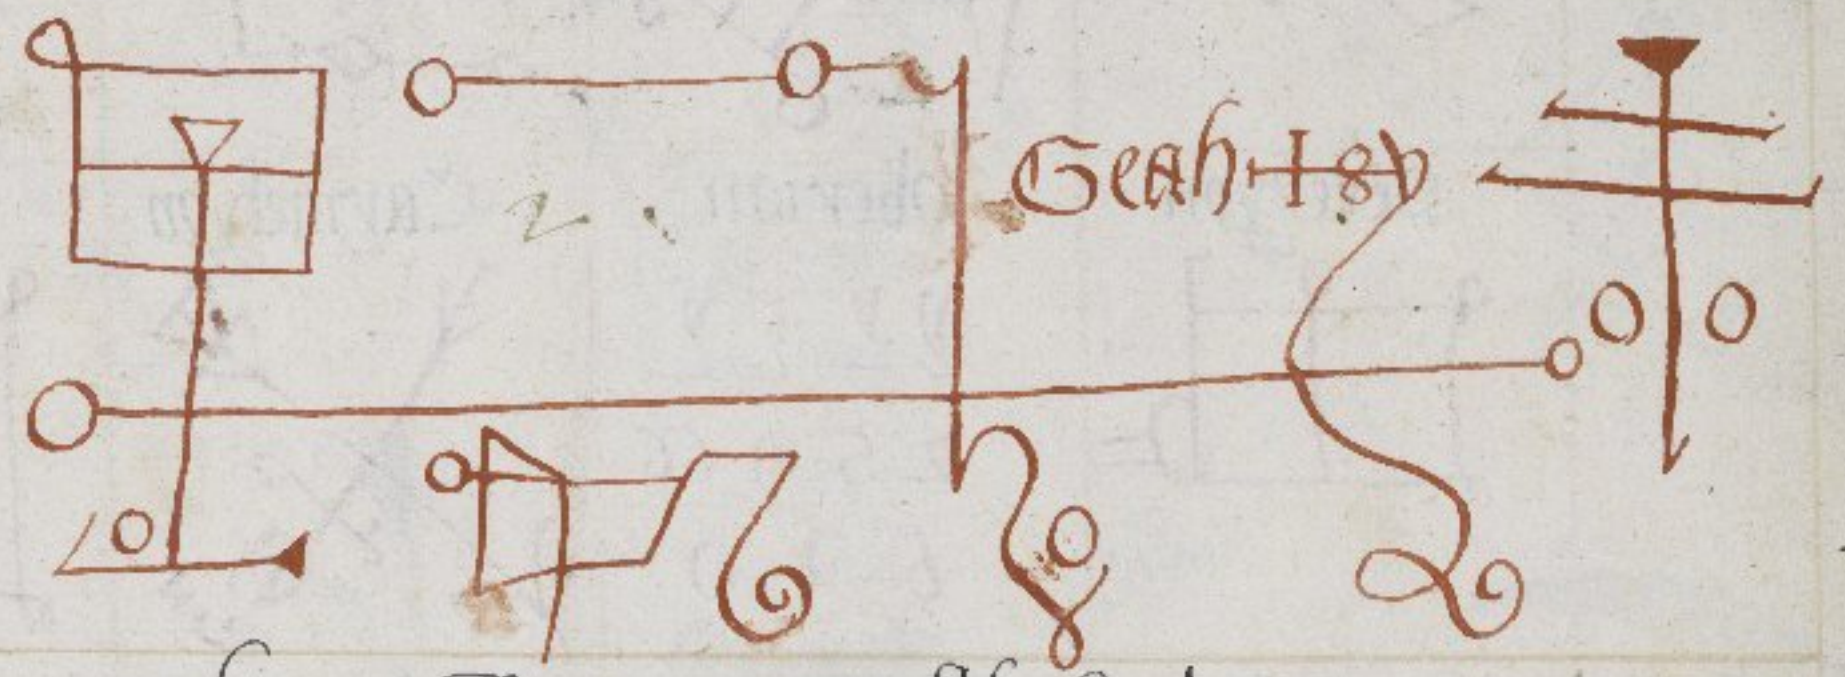 2.
Geah + 8v